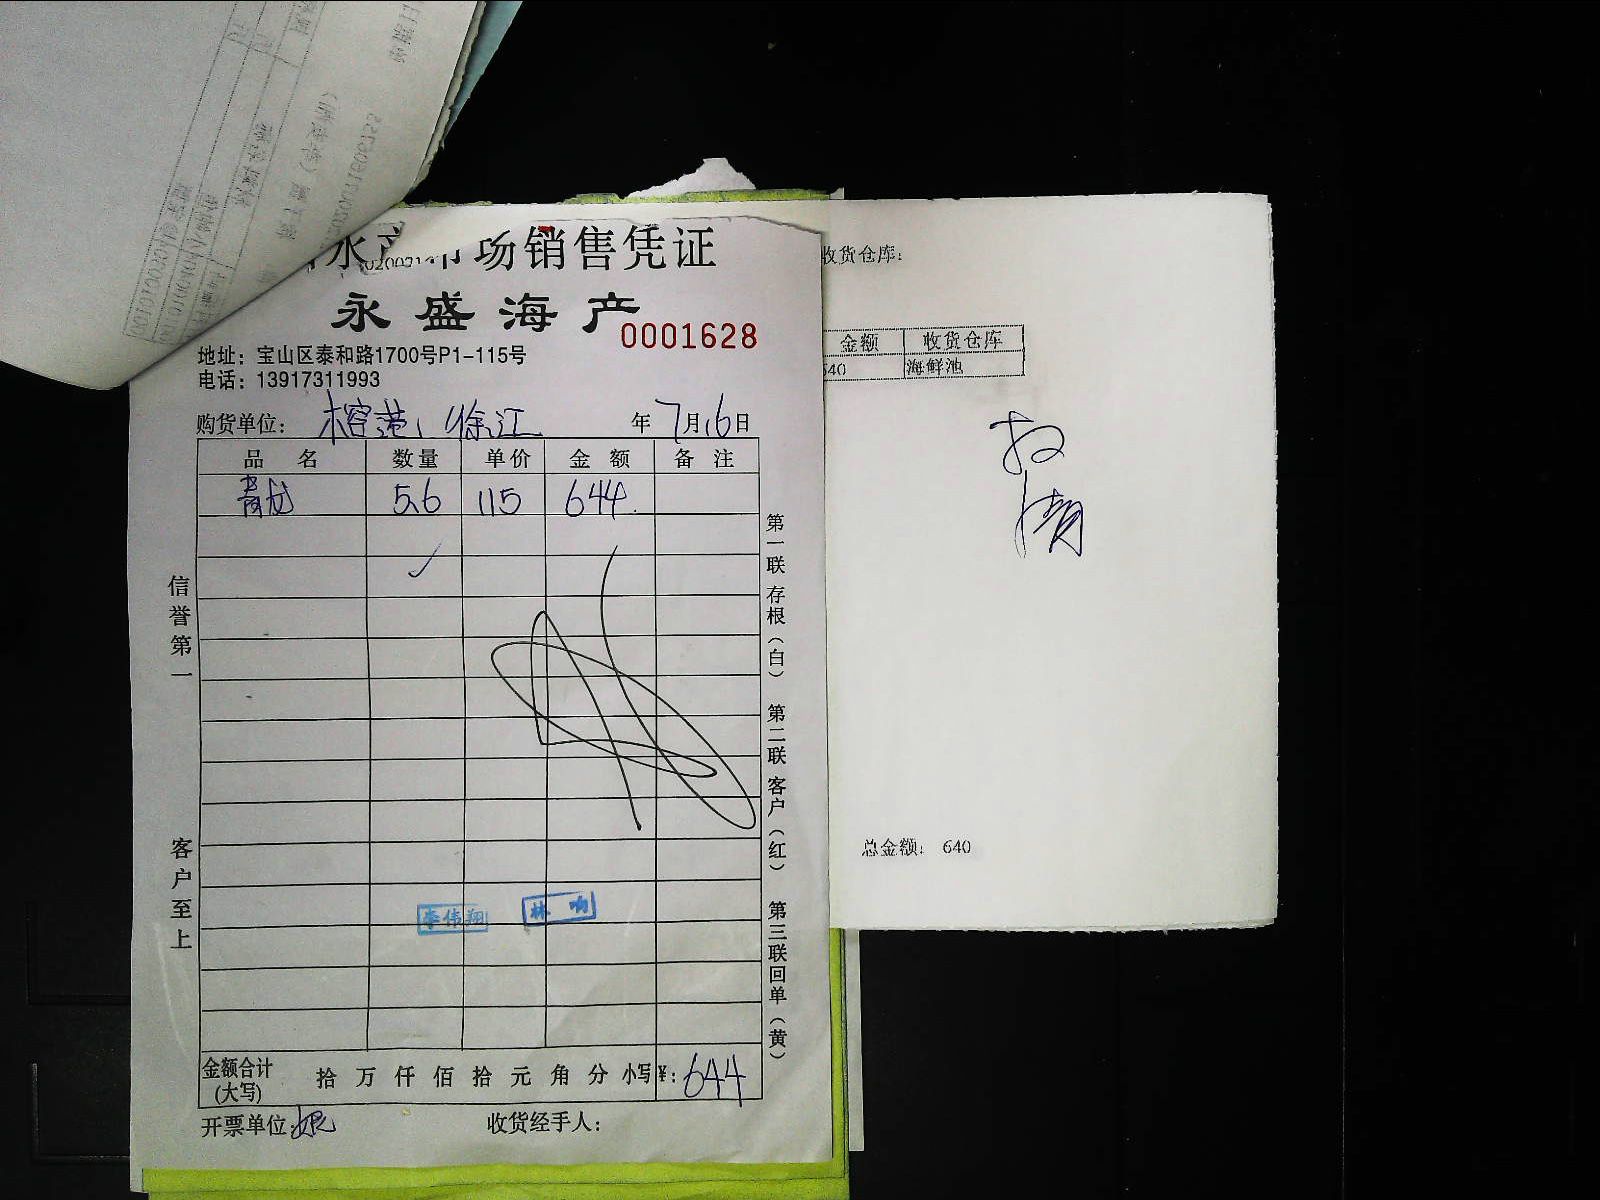 水产市场销售凭证
永盛海产
0001628
地址：宝山区泰和路1700号P1-115号
电话：13917311993
购货单位：榕港、徐江 年7月16日
品名 数量 单价 金额 备注
青龙 5.6 115 644
信誉第一
客户至上
第一联存根（白） 第二联客户（红） 第三联回单（黄）
李伟翔 林响
金额合计(大写) 拾 万 仟 佰 拾 元 角 分 小写¥：644
开票单位：
收货经手人：
收货仓库：
金额 收货仓库
640 海鲜池
总金额： 640